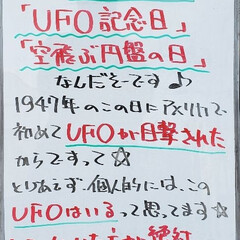 「UFO記念日」
「空飛ぶ円盤の日」
なんだそーです♪
1947年のこの日にアメリカで、
初めてUFOが目撃された
からですって☆
とりあえず、個人的には、この
UFOはいるって思ってます☆